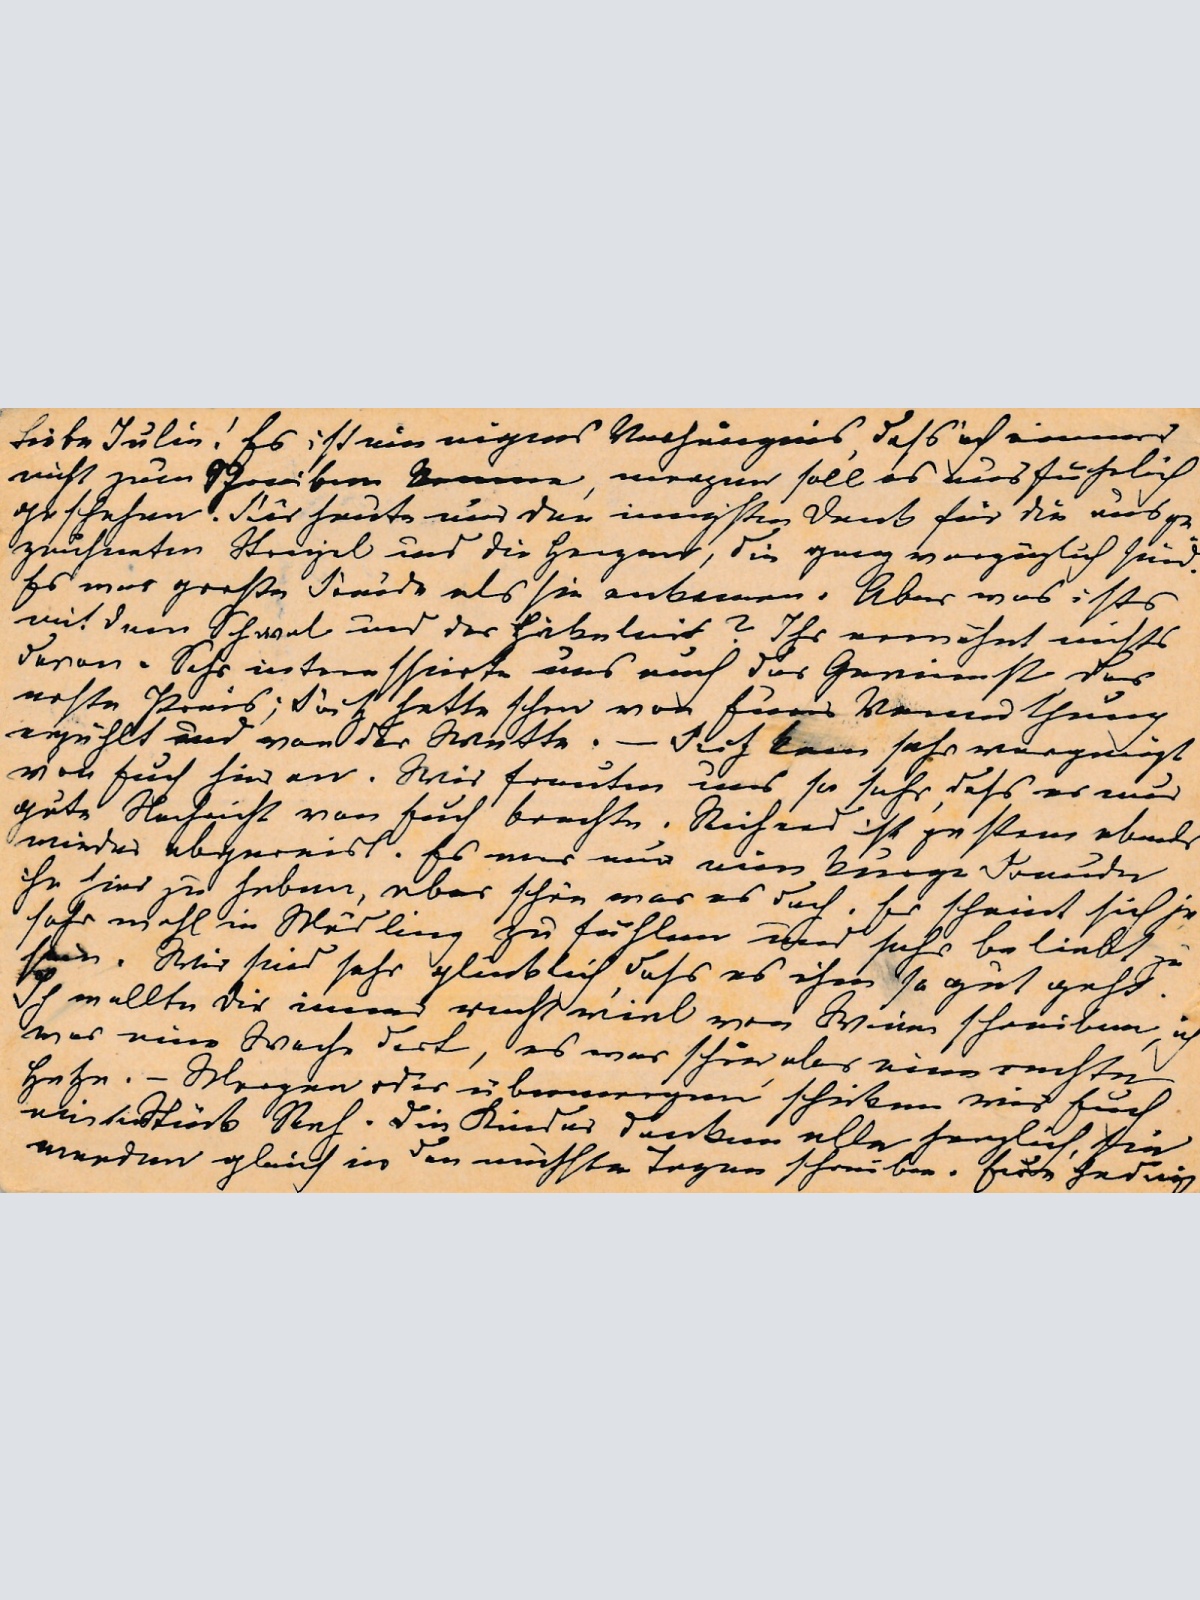 Liebe Julie! Es ist ein eigenes Verhängnis, dass ich immer
nicht zum Schreiben komme, morgen soll es ausführlich
geschehen. Für heute nur den innigsten Dank für die ausge
zeichneten Striezel und die Herzen, die ganz vorzüglich sind.
Es war große Freude als sie ankamen. Aber was ists
mit dem Schwal und der Häkelnit? Ihr erwähnt nichts
davon. Sehr interessierte uns auch das Gewinnst des
erste Preis; Fritz hatte schon von Eurer Vermuthung
erzählt und von der Wette. — Fritz kam sehr vergnügt
von Euch hier an. Wir freuten uns so sehr, dass er nur
gute Nachricht von Euch brachte. Richard ist gestern abends
wieder abgereist. Es war nur eine kurze Freude
ihn hier zu haben, aber schön war es doch. Er scheint sich ja
sehr wohl in Mödling zu fühlen und sehr beliebt zu
sein. Wir sind sehr glücklich, dass es ihm so gut geht.
Ich wollte Dir immer recht viel von Wien schreiben, ich
war eine Woche dort, es war schön, aber eine rechte
Hetze. — Morgen oder übermorgen schicken wir Euch
ein Stück Reh. Die Kinder danken alle herzlich, sie
werden gleich in den nächsten Tagen schreiben. Eure Hedwig